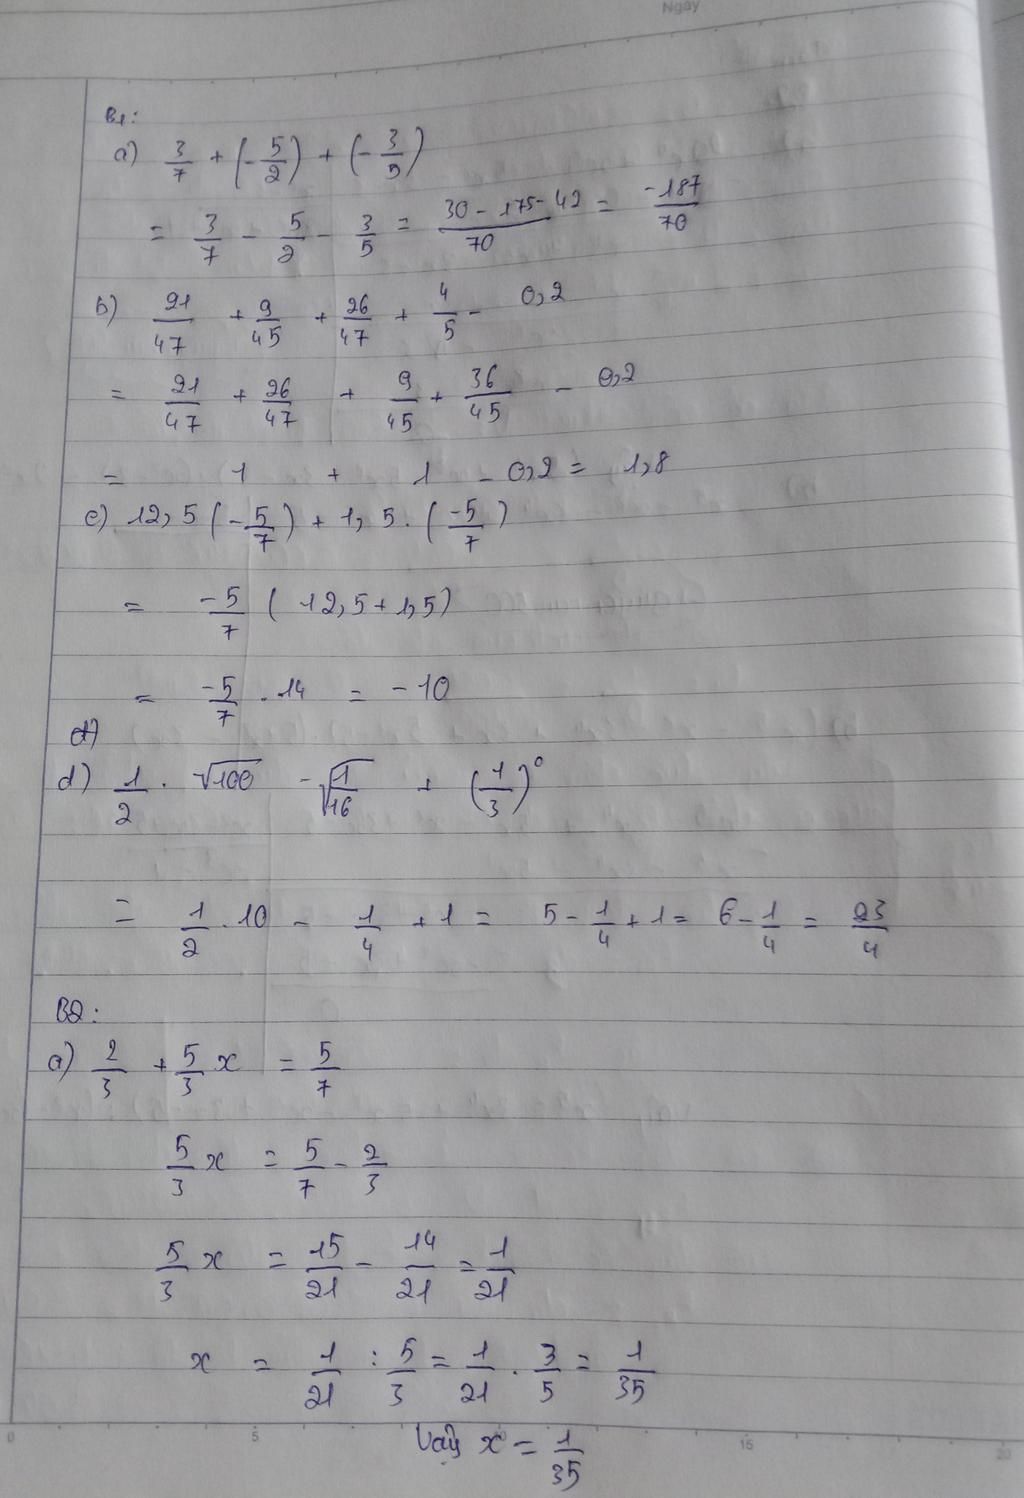 Ngày
B1:
a) 3/7 + (-5/2) + (-3/5)
= 3/7 - 5/2 - 3/5 = (30 - 175 - 42)/70 = -187/70
b) 21/47 + 9/45 + 26/47 + 4/5 - 0,2
= 21/47 + 26/47 + 9/45 + 36/45 - 0,2
= 1 + 1 - 0,2 = 1,8
c) 12,5 (-5/7) + 1,5 . (-5/7)
= -5/7 (12,5 + 1,5)
= -5/7 . 14 = -10
d)
d) 1/2 . √100 - √(1/16) + (1/3)^0
= 1/2 . 10 - 1/4 + 1 = 5 - 1/4 + 1 = 6 - 1/4 = 23/4
B2:
a) 2/3 + 5/3 x = 5/7
5/3 x = 5/7 - 2/3
5/3 x = 15/21 - 14/21 = 1/21
x = 1/21 : 5/3 = 1/21 . 3/5 = 1/35
Vậy x = 1/35
0 5 10 15 20